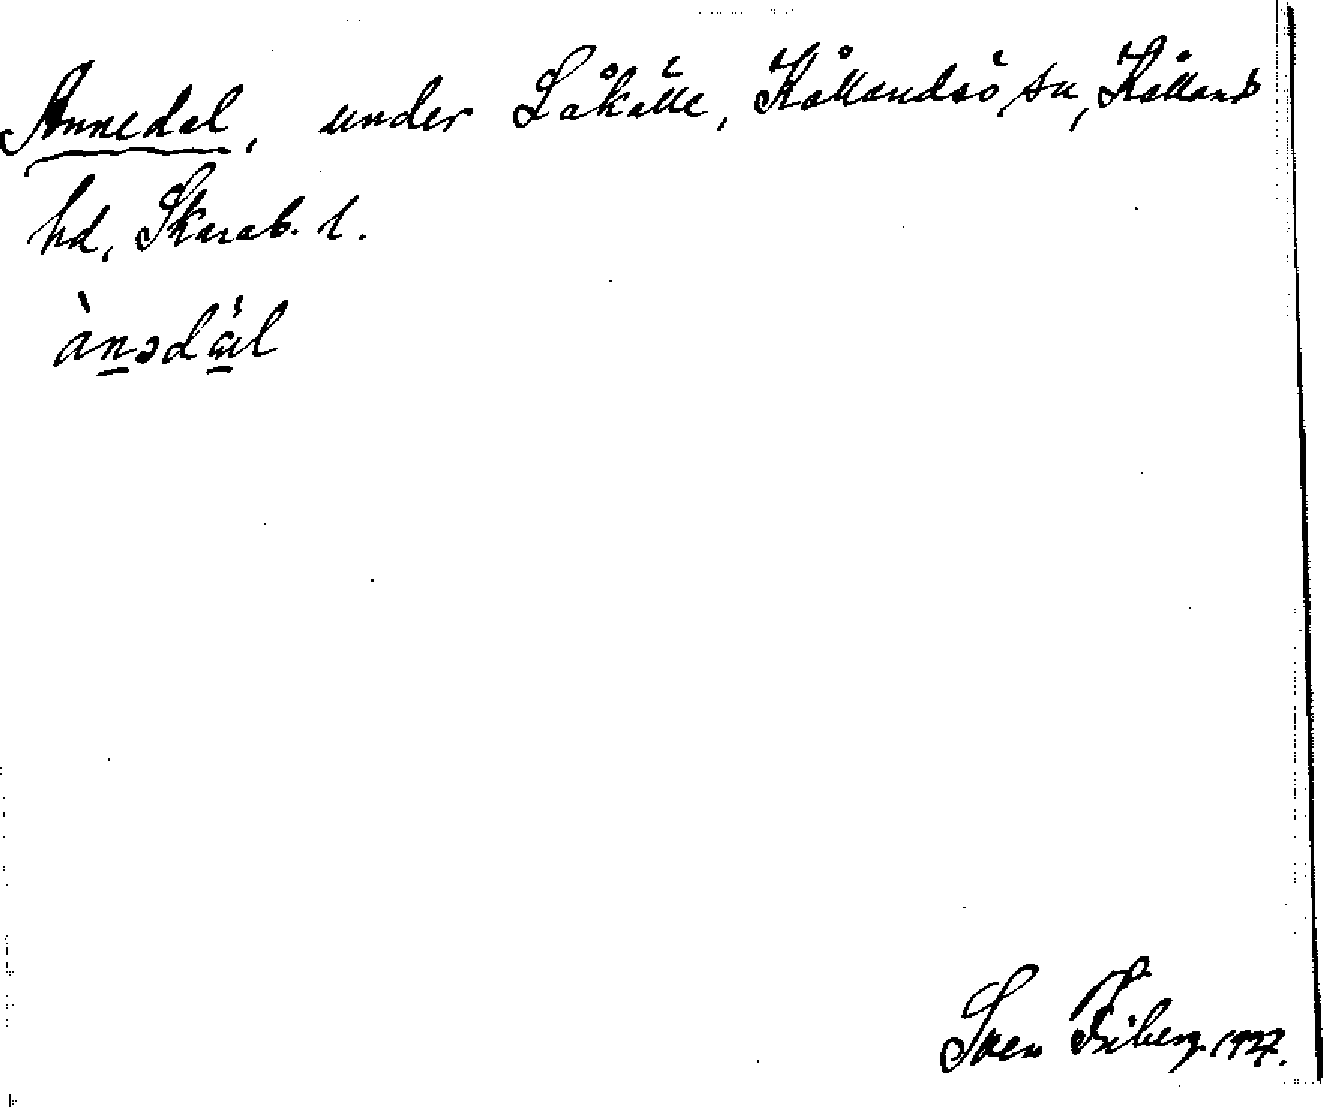 Annedal, under Låkälle, Kållandsö sn, Kållands
hd, Skarab. l.
ànədàl
Sven Friberg 1927.